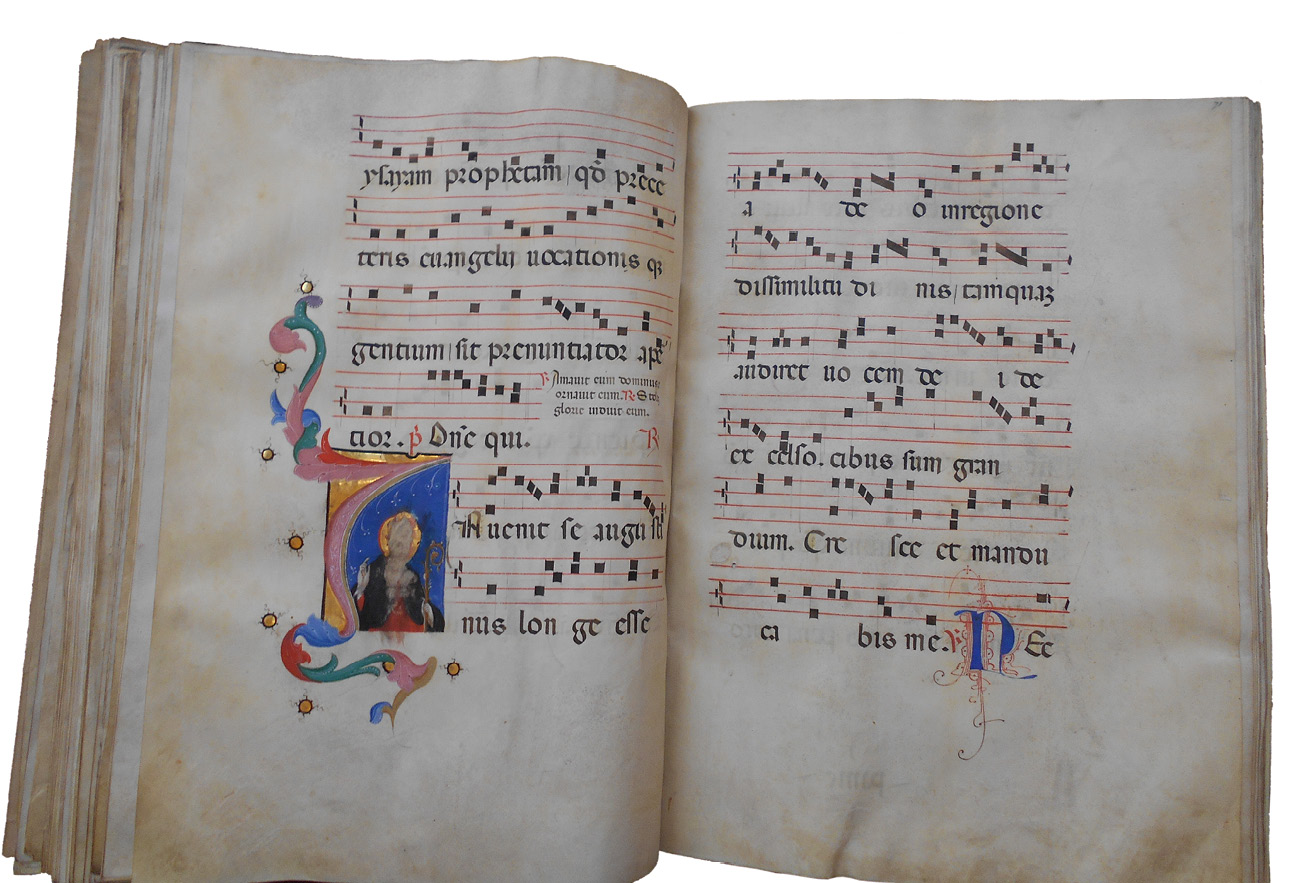 ysayam prophetam / qd̄ prece
teris euangelij uocationis q
gentium / sit prenuntiator apē
Amauit eum dominus
ornauit eum. R. Sto
glorie induit eum.
tior. p̄ Dn̄e qui. R
Auenit se augusti
nus lon ge esse
a de o inregione
dissimilitu di nis / tamquaʒ
audiret uo cem de i de
ex celso. cibus sum gran
dium. Cre sce et mandu
ca bis me. V N Ec